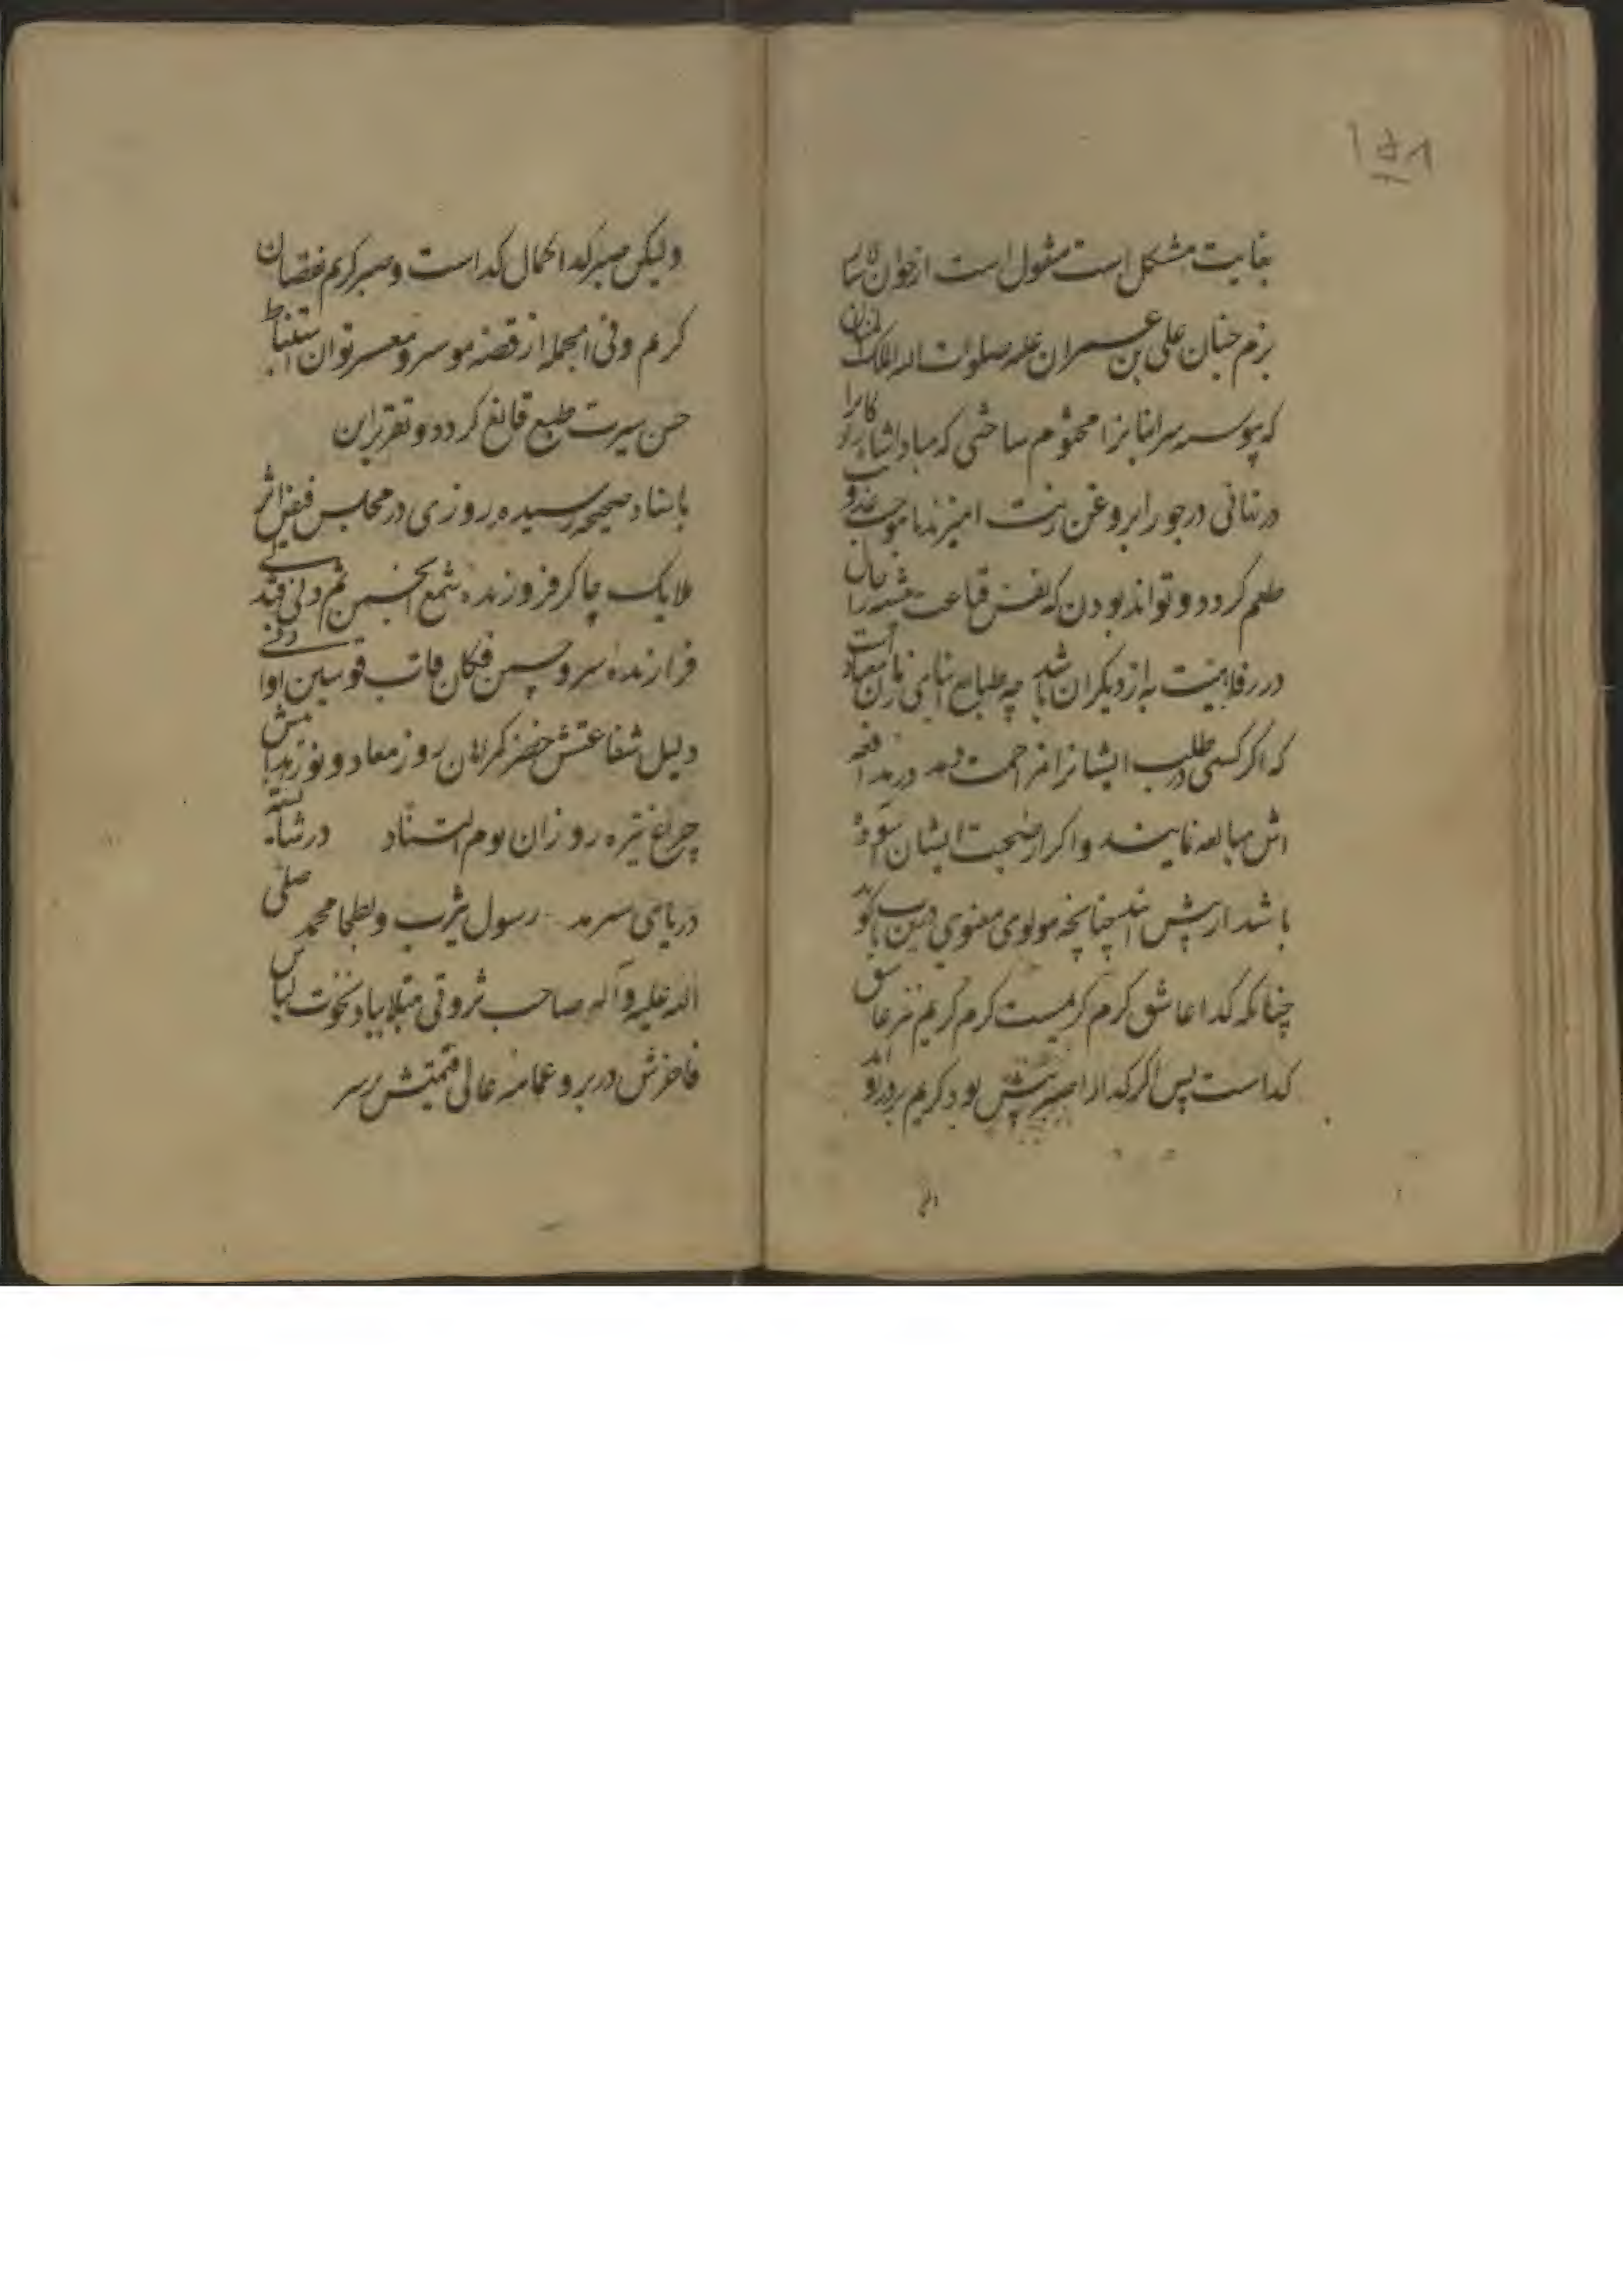 ۱۵۸
بغایت مشکل است منقول است از خوان سالار
بزم جنان علی بن عمران علیه صلوات الله الملک المنان
که پیوسته سر انبانرا مختوم ساختی که مبادا
در نهانی درجو را بروغن زیت امیزند تا موجب عذوبت
طعم کردد و تواند بودن که نفس قناعت پیشه را
در رفاهیت به از دیکران باشد چه طبایع
که اکر کسی در طلب ایشانرا مزاحمت دهد در مدافعه
اش مبالغه نمایند و اکر از صحبت ایشان آسوده
باشد از پیش چنانچه مولوی معنوی درین باب کوید
چنانکه کدا عاشق کرم کریمست کرم کریم نیز عاشق
کداست پس اکر کدا را صبر بیش بود کریم بر در او آید
ولیکن صبر کدا کمال کداست و صبر کریم نقصان
کرم و فی الجمله از قصه موسر و معسر توان استنباط
حسن سیرت طبع قانع کردد و تقریر این
باسناد صحیحه رسیده روزی در مجلس فیض اثر
ملایک چاکر فروزنده شمع انجمن ثم دنی فتدلی
فرازنده سرو چمن فکان قاب قوسین او ادنی
دلیل شفاعتش خضر کمرهان روز معاد و نور هدایتش
چراغ تیره روزان یوم التناد
دریای سرمد رسول یثرب و بطحا محمد صلی
الله علیه و آله صاحب ثروتی مبتلا بباد نخوت لباس
فاخرش در بر و عمامه عالی قیمتش بر سر